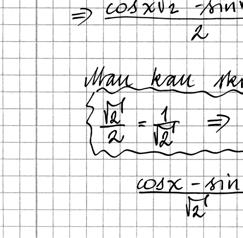 ⇒ cosx√2 - sin
2
Man kan
√2/2 = 1/√2 ⇒
cosx - sin
√2